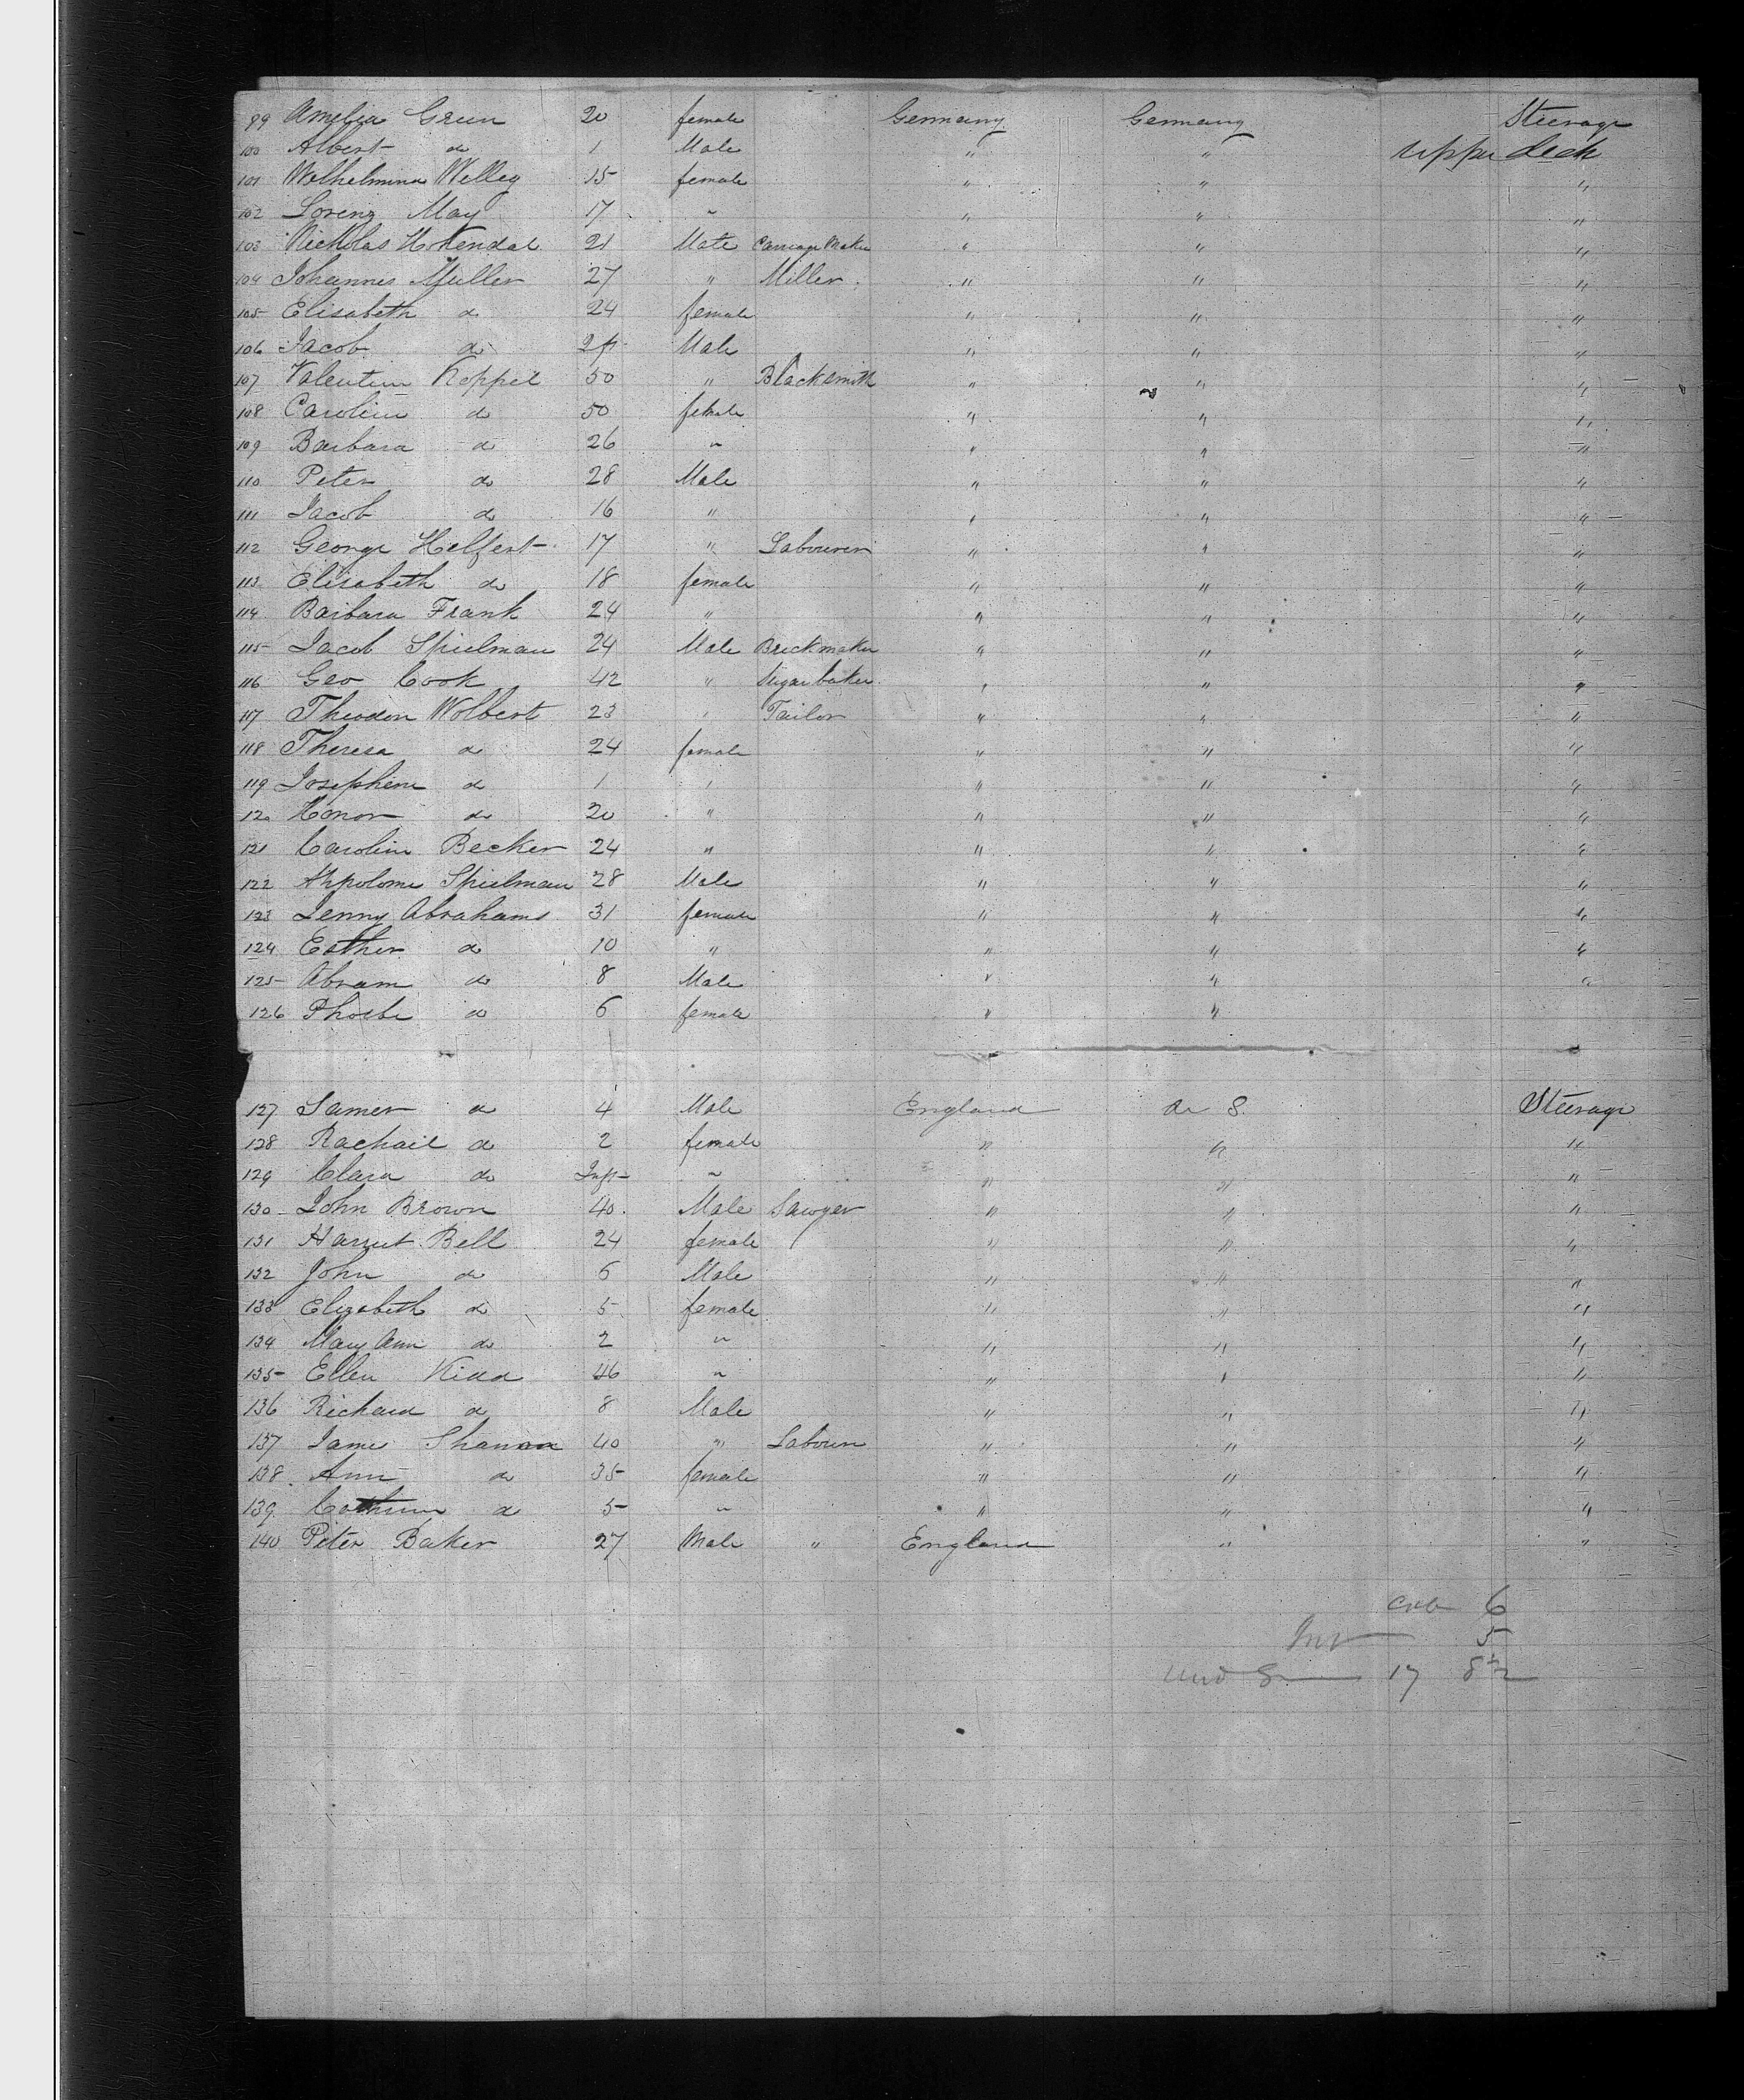 99 Amelia Green 20 female Germany Germany Steerage
100 Albert do 1 Male " " upper deck
101 Wilhelmina Welley 15 female " " "
102 Lorenz May 17 " " " "
103 Nicholas 21 Male Carriage Maker " " "
104 Johannes Muller 27 " Miller " " "
105 Elisabeth do 24 female " " "
106 Jacob do Male " " "
107 Valentin Keppel 50 " Blacksmith " " "
108 Carolin do 50 female " " "
109 Barbara do 26 " " " "
110 Peter do 28 Male " " "
111 Jacob do 16 " " " "
112 George Helfert 17 " Labourer " " "
113 Elisabeth do 18 female " " "
114 Barbara Frank 24 " " " "
115 Jacob Spielman 24 Male Brickmaker " " "
116 Geo Cook 42 " Sugar baker " " "
117 Theodor Wolbert 23 " Tailor " " "
118 Theresa do 24 female " " "
119 Josephine do 1 " " " "
120 Honor do 20 " " " "
121 Carolin Becker 24 " " " "
122 Spielman 28 Male " " "
123 Jenny Abrahams 31 female " " "
124 Esther do 10 " " " "
125 Abram do 8 Male " " "
126 Phoebe do 6 female " "
127 James do 4 Male England S. Steerage
128 Rachail do 2 female " " "
129 Clara do Inft " " " "
130 John Brown 40 Male Sawyer " " "
131 Harriet Bell 24 female " " "
132 John do 6 Male " " "
133 Elizabeth do 5 female " " "
134 Mary Ann do 2 " " " "
135 Ellen Kidd 46 " " " "
136 Richard do 8 Male " " "
137 James Shannon 40 " Labourer " " "
138 Ann do 35 female " " "
139 do 5 " " " "
140 Peter Baker 27 Male " England " "
6
5
17 8 1/2